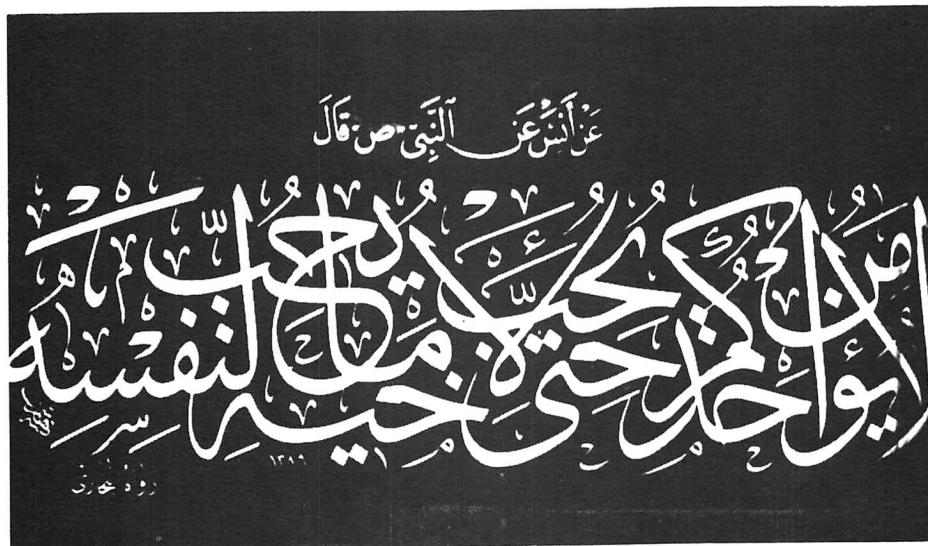 عَنْ أَنَسٍ عَنِ النَّبِيِّ ص قَالَ
لا يؤمن أحدكم حتى يحب لأخيه ما يحب لنفسه
١٣٨٩
رواه بخارى